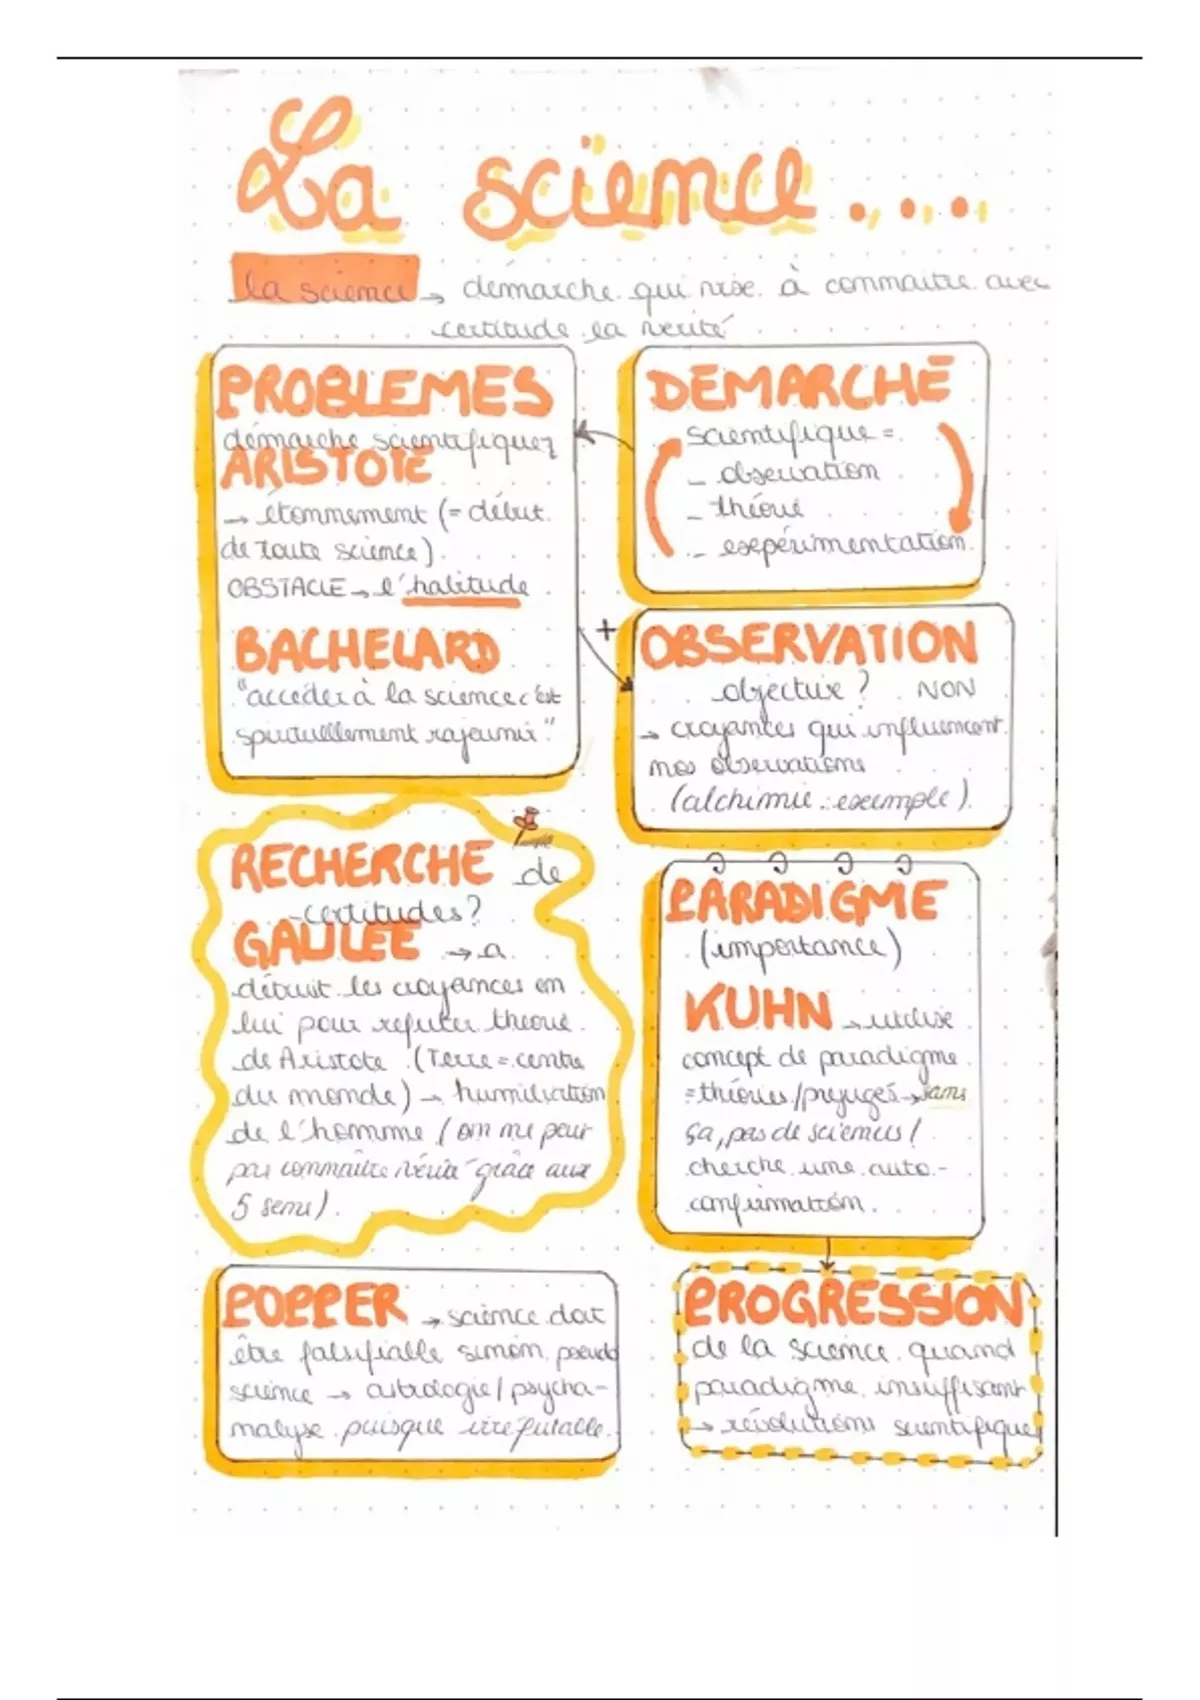 La science....
la science → démarche qui vise à connaitre avec
certitude la vérité
PROBLEMES
démarche scientifique?
ARISTOTE
→ étonnement (= début
de toute science)
OBSTACLE → l'habitude
BACHELARD
"accéder à la science c'est
spirituellement rajeunir."
DEMARCHE
scientifique =
- observation
- théorie
- expérimentation
+
OBSERVATION
objective ? NON
→ croyances qui influencent
nos observations
(alchimie : exemple)
RECHERCHE de
certitudes ?
GALILEE → a
détruit les croyances en
lui pour refuter théorie
de Aristote (Terre = centre
du monde) → humiliation
de l'homme (on ne peut
pas connaitre vérité grâce aux
5 sens).
PARADIGME
(importance)
KUHN → utilise
concept de paradigme
= théories/préjugés → sans
ça, pas de sciences !
cherche une auto-
confirmation.
POPPER → science doit
être falsifiable sinon pseudo
science → astrologie/psycha-
nalyse puisque irréfutable.
PROGRESSION
de la science quand
paradigme insuffisant
→ révolutions scientifiques